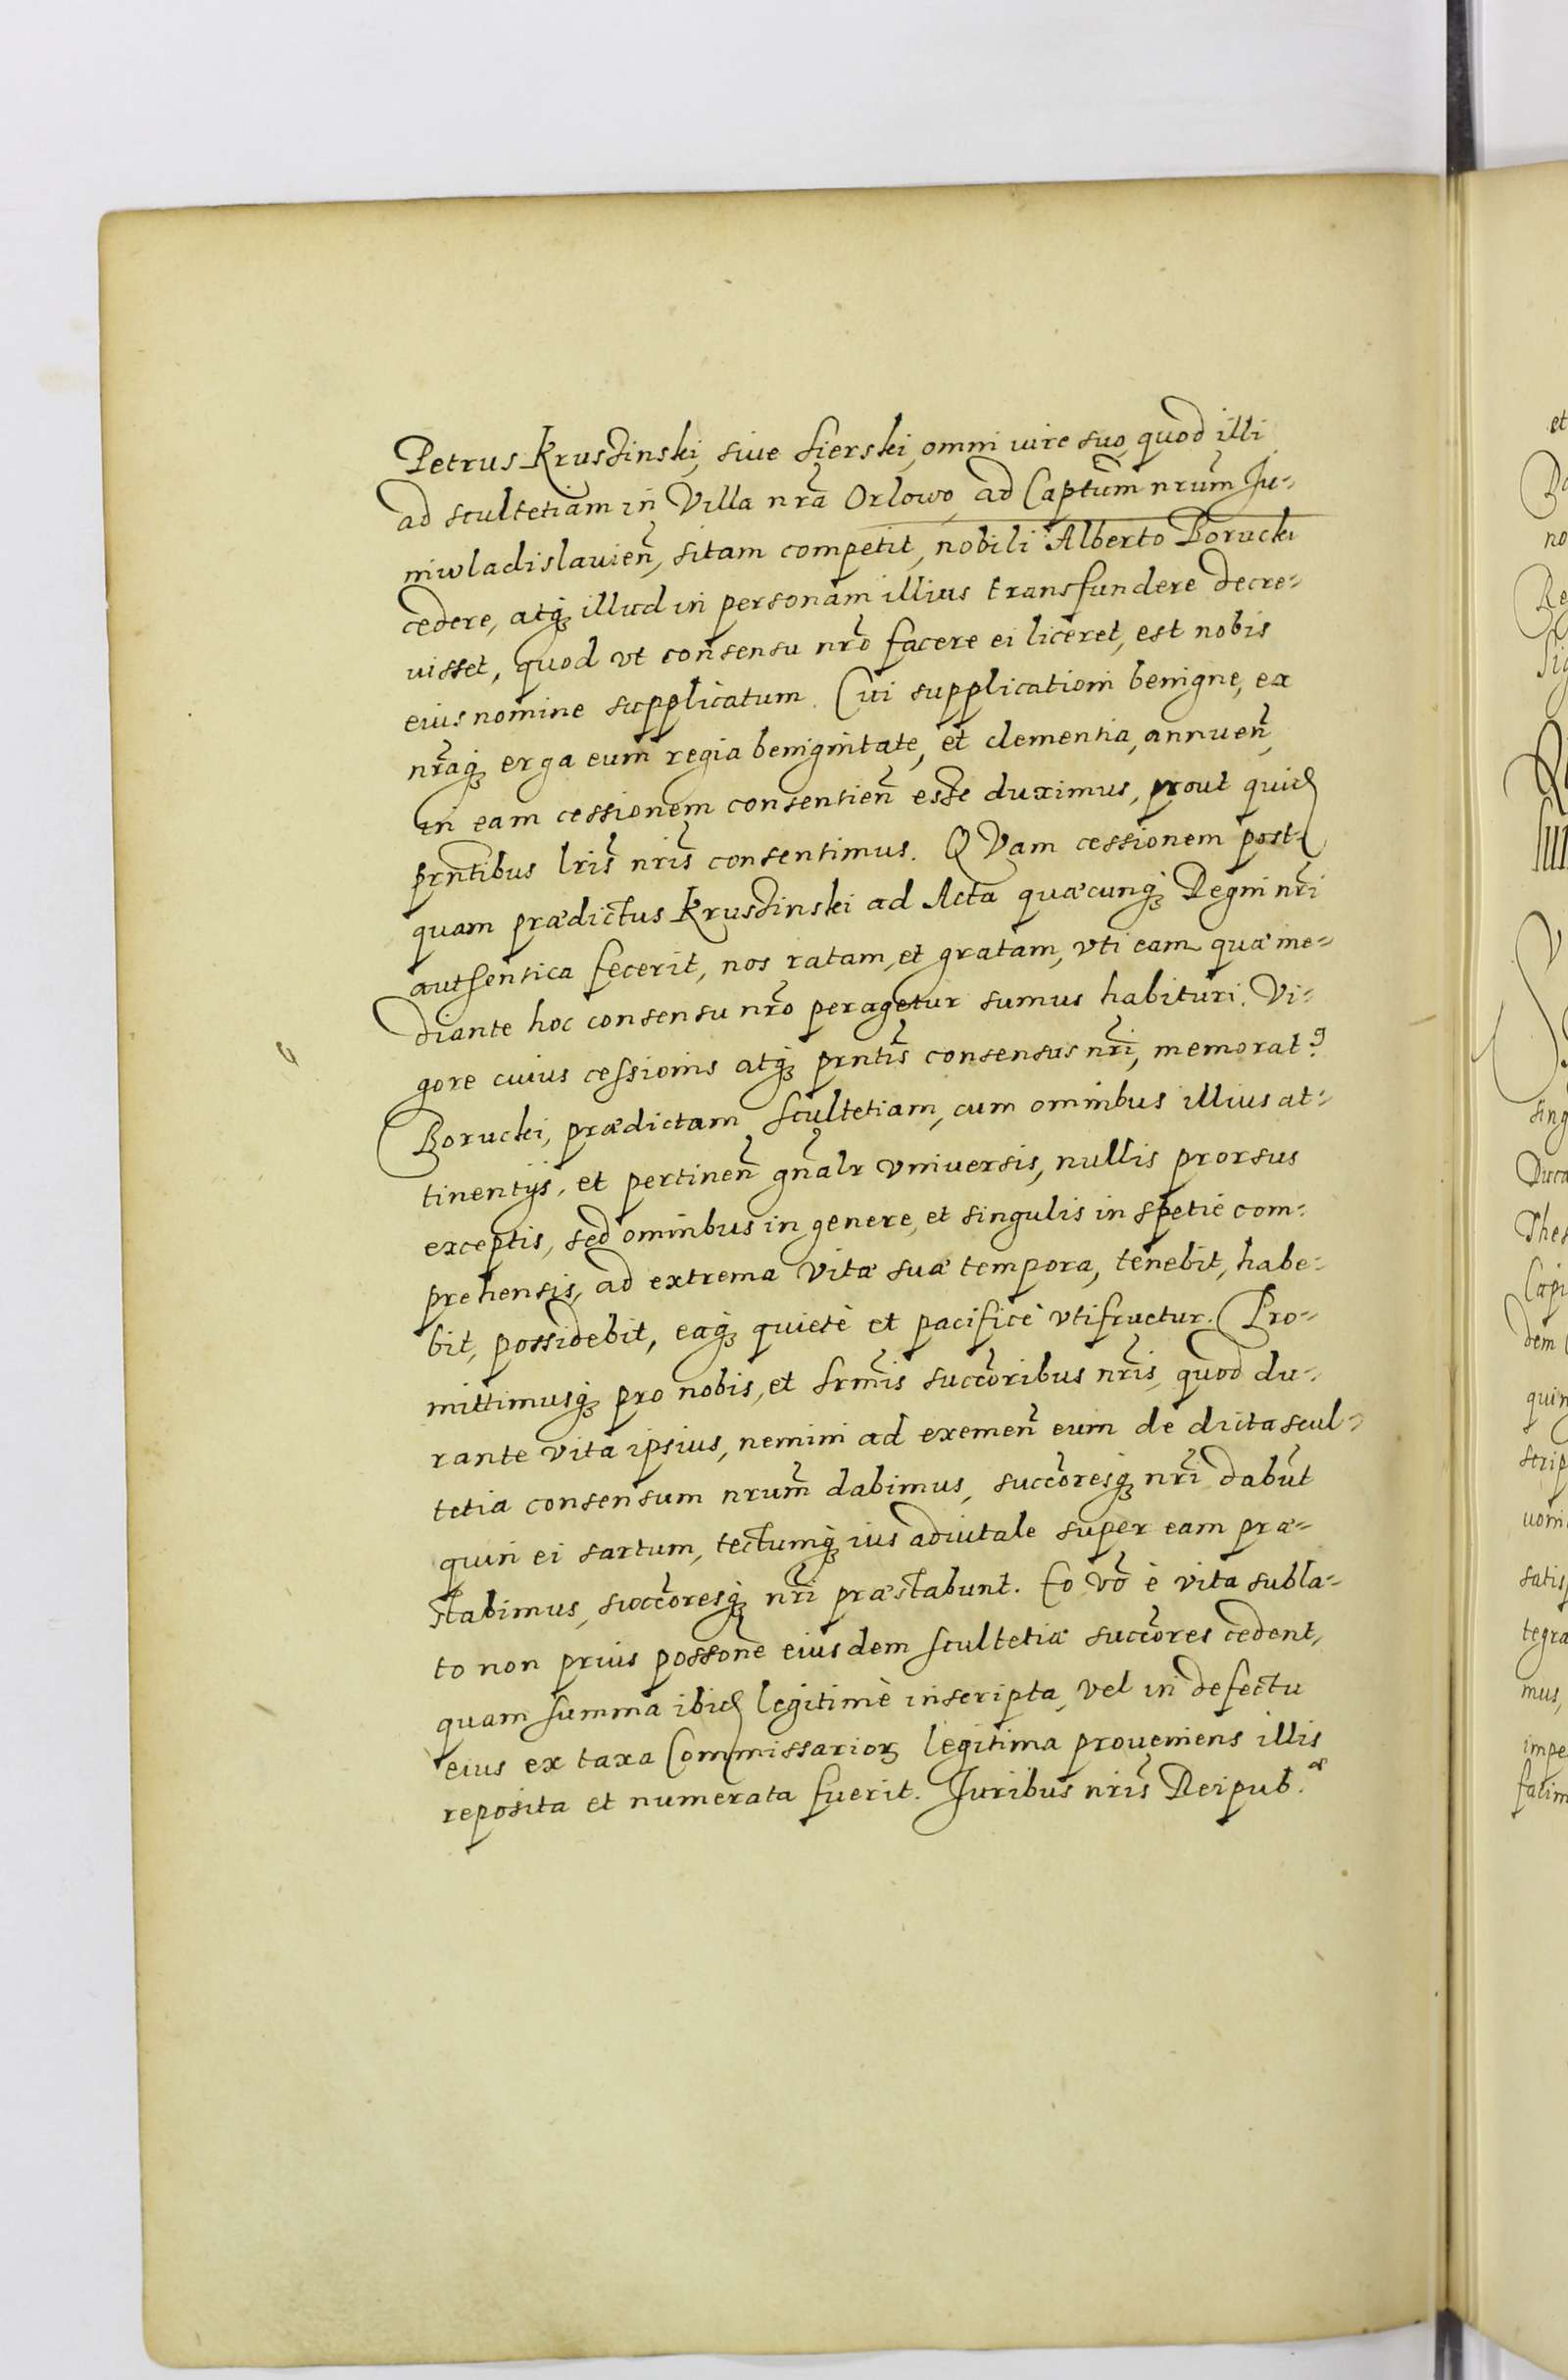 Petrus Krusdinski, siue Sierski, omni iure suo, quod illi
ad scultetiam in Villa nrã Orlowo, ad Captum nrum Ju-
niwladislauien, sitam competit, nobili Alberto Borucki
cedere, atq illud in personam illius transfundere decre-
uisset, quod vt consensu nrõ facere ei liceret, est nobis
eius nomine supplicatum. Cui supplicationi benigne, ex
nraq erga eum regia benignitate, et clementia, annuen,
in eam cessionem consentien esse duximus, prout quid
prntibus lris nris consentimus. QVam cessionem post-
quam prædictus Krusdinski ad Acta quæcunq Regni nri
authentica fecerit, nos ratam, et gratam, vti eam quæ me-
diante hoc consensu nrõ peragetur sumus habituri. Vi-
gore cuius cessionis atq prntis consensus nri, memorat9
Borucki, prædictam Scultetiam, cum omnibus illius at-
tinentijs, et pertinen gnalr vniuersis, nullis prorsus
exceptis, sed omnibus in genere, et singulis in spetie com-
prehensis, ad extrema vitæ suæ tempora, tenebit, habe-
bit, possidebit, eaq quietè et pacificè vtifruetur. Pro-
mittimusq pro nobis, et Srmis succoribus nris, quod du-
rante vita ipsius, nemini ad exemen eum de dicta scul-
tetia consensum nrum dabimus, succoresq nri dabut
quin ei sartum, tectumq ius aduitale super eam præ-
stabimus, succoresq nri præstabunt. Eo vo è vita subla-
to non prius possone eiusdem Scultetiæ succores cedent,
quam summa ibid legitimè inscripta, vel in defectu
eius ex taxa Commissarior legitima proueniens illis
reposita et numerata fuerit. Juribus nris Reipub.æ